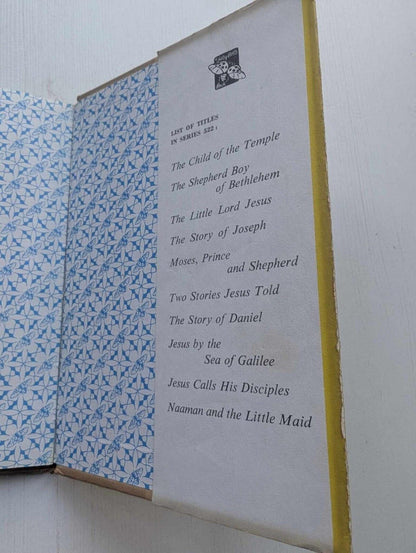 LADYBIRD
LIST OF TITLES
IN SERIES 522:
The Child of the Temple
The Shepherd Boy
of Bethlehem
The Little Lord Jesus
The Story of Joseph
Moses, Prince
and Shepherd
Two Stories Jesus Told
The Story of Daniel
Jesus by the
Sea of Galilee
Jesus Calls His Disciples
Naaman and the Little Maid